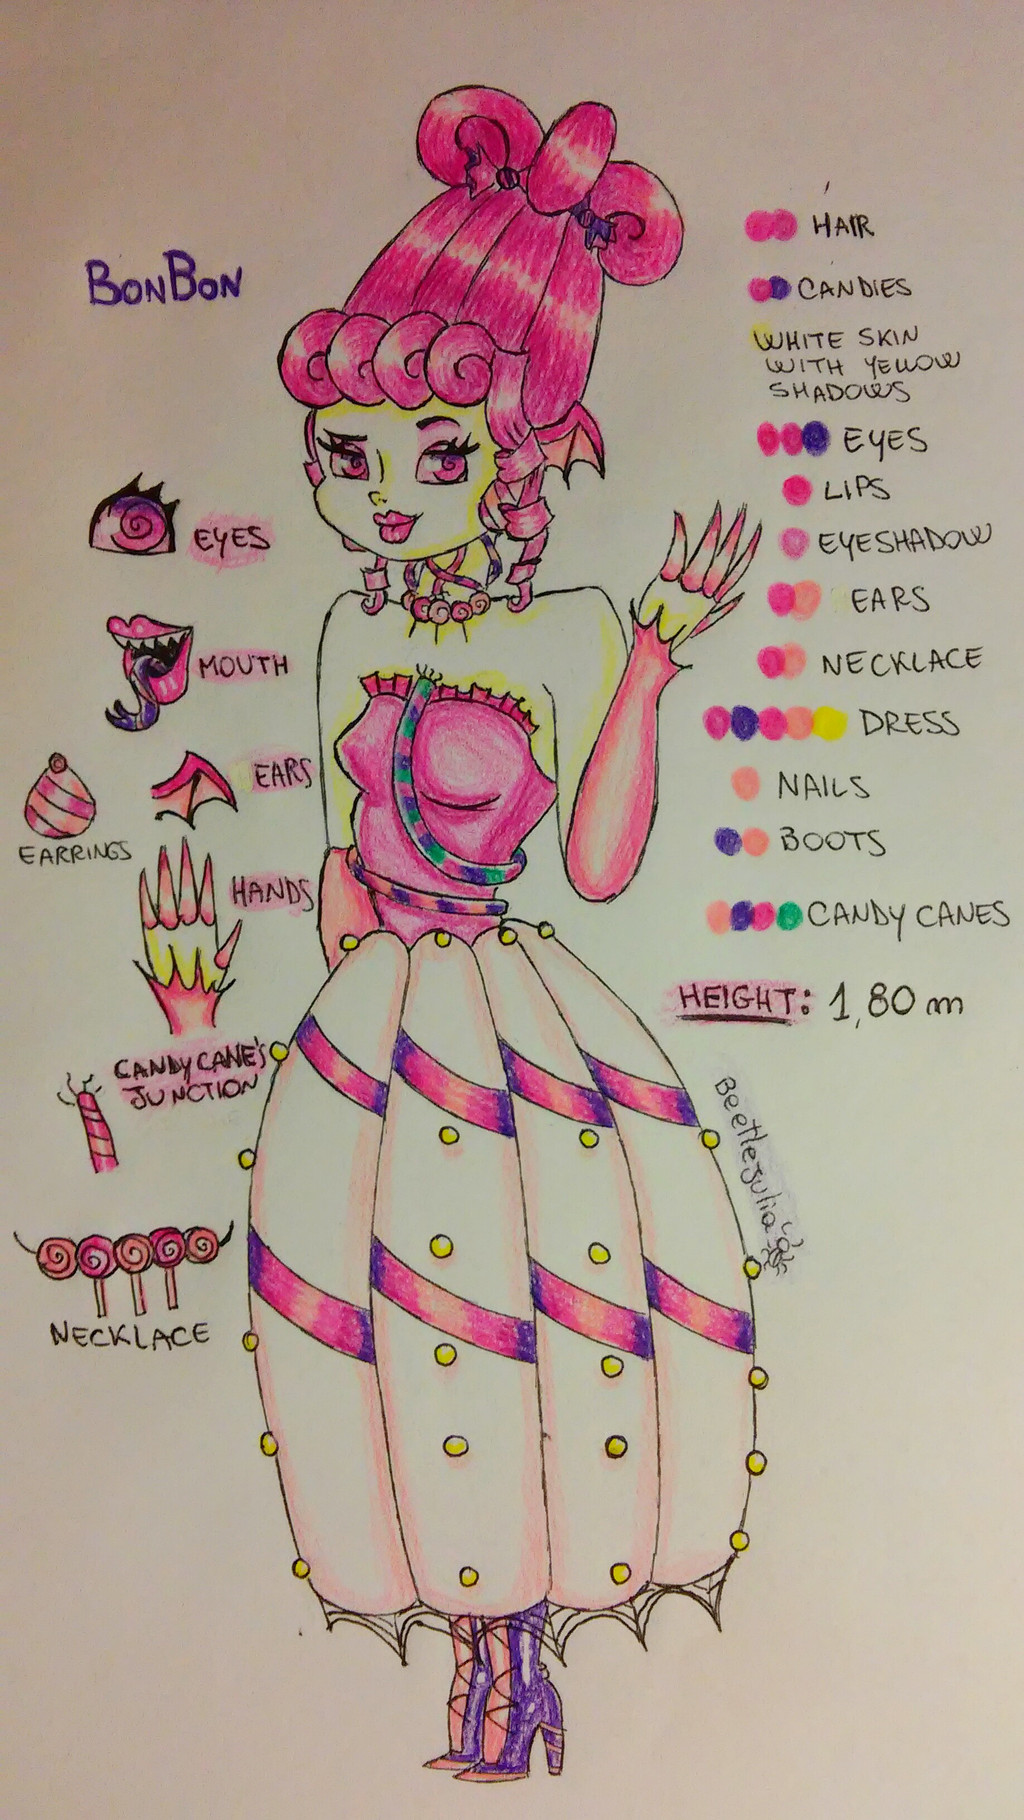 BONBON
EYES
MOUTH
EARS
EARRINGS
HANDS
CANDY CANE'S
JUNCTION
NECKLACE
HAIR
CANDIES
WHITE SKIN
WITH YELLOW
SHADOWS
EYES
LIPS
EYESHADOW
EARS
NECKLACE
DRESS
NAILS
BOOTS
CANDY CANES
HEIGHT: 1,80 m
Beetlejulia